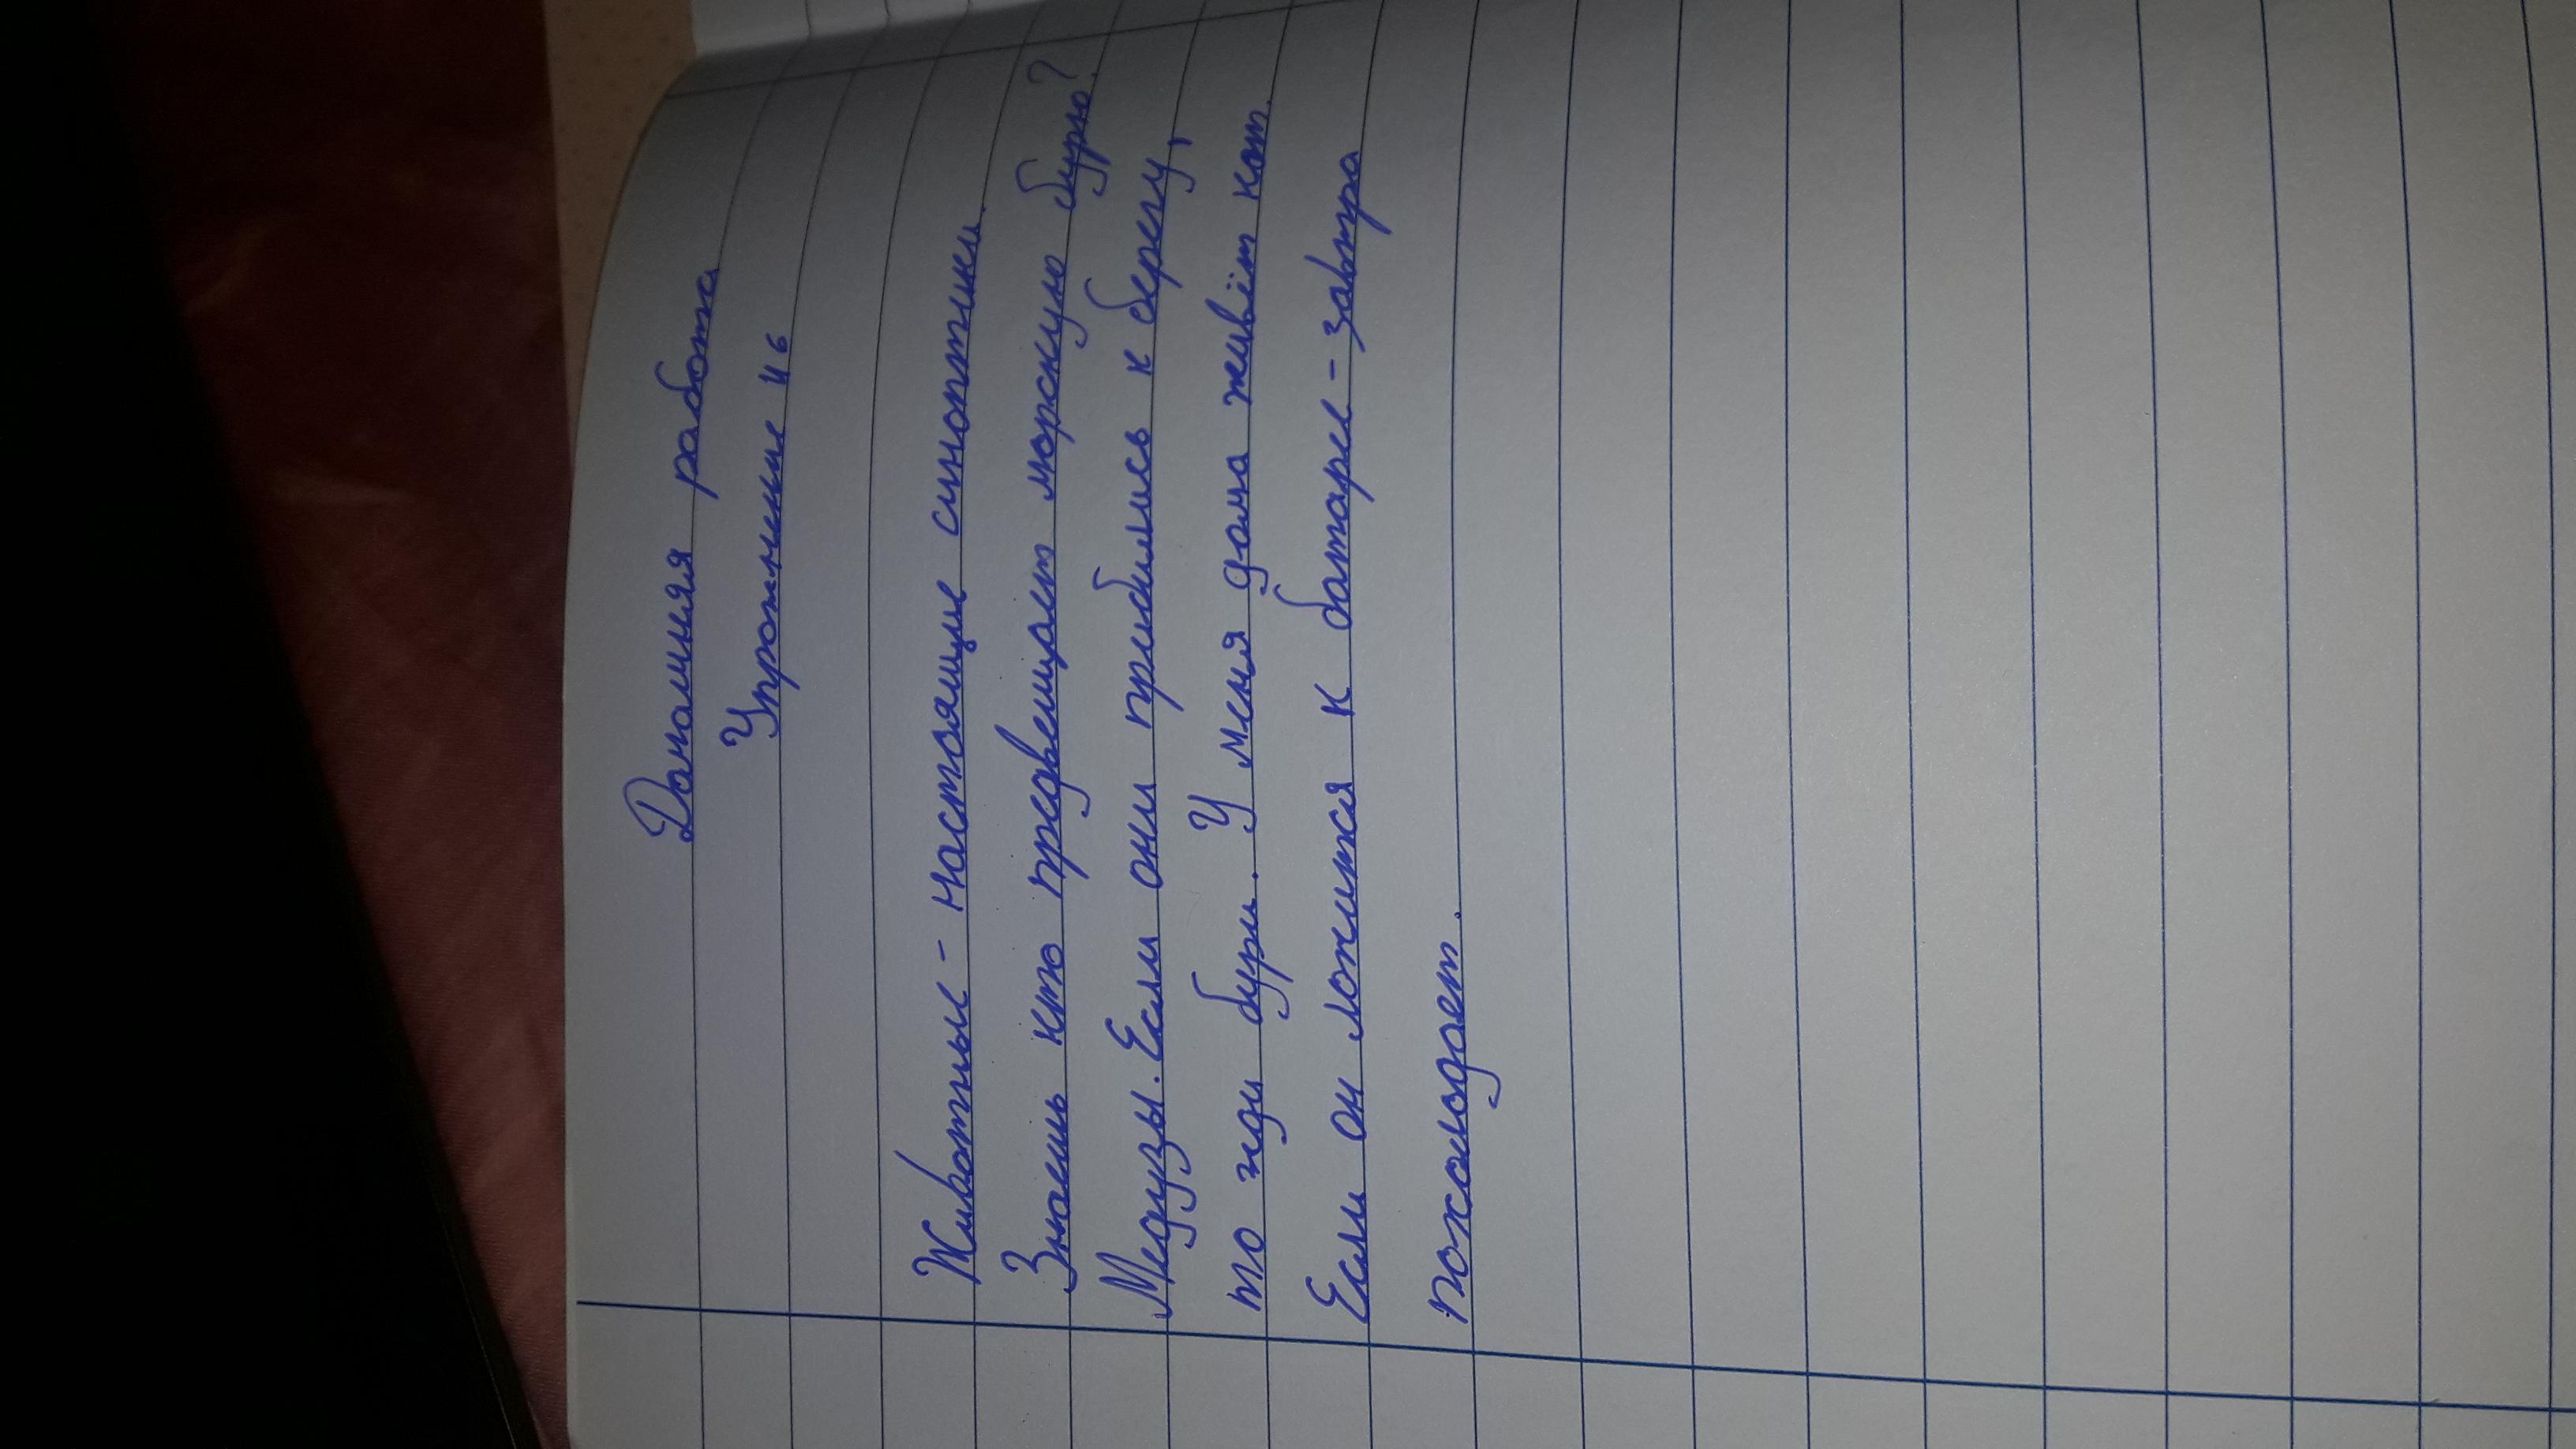 Домашняя работа
Упражнение 116
Животные - настоящие синоптики.
Знаешь кто предвещает морскую бурю?
Медузы. Если они прибились к берегу,
то жди бури. У меня дома живёт кот.
Если он ложится к батарее - завтра
похолодает.